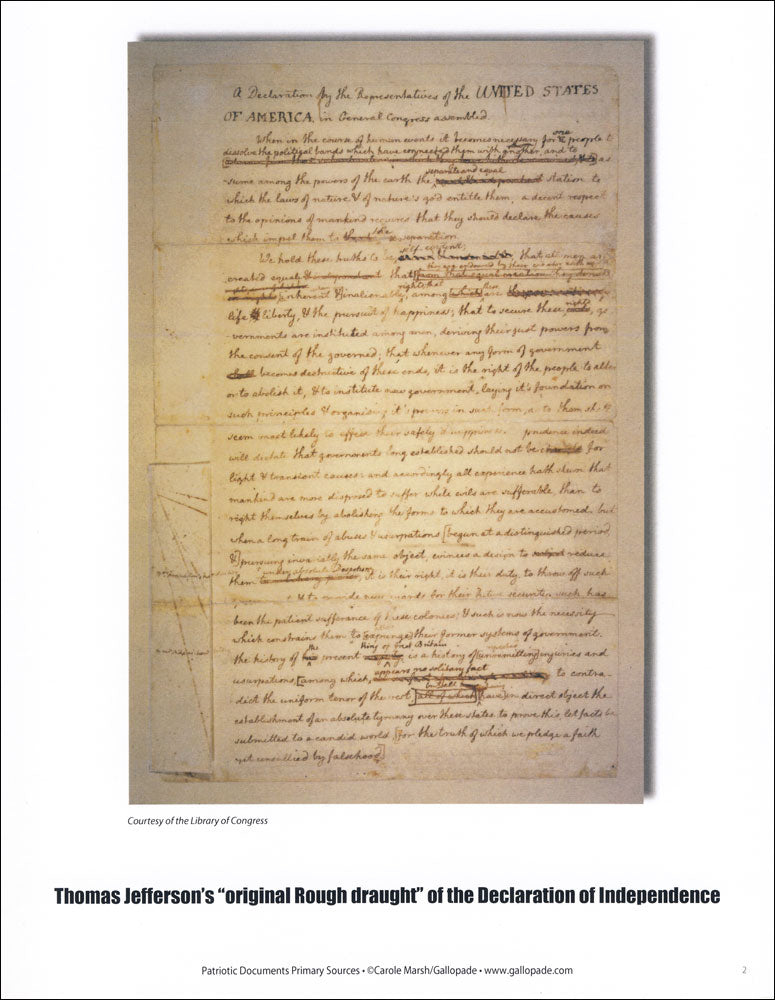 A Declaration by the Representatives of the UNITED STATES
OF AMERICA, in General Congress assembled.
When in the course of human events it becomes necessary for one people to
dissolve the political bands which have connected them with another, and to
as
separate and equal
sume among the powers of the earth the station to
which the laws of nature & of nature's god entitle them, a decent respect
to the opinions of mankind requires that they should declare the causes
which impel them to the separation.
self-evident;
We hold these truths to be that all men are
they are endowed by their creator with
created equal & independent that from that equal creation they derive
rights that
in rights inherent & inalienable, among which are
life & liberty, & the pursuit of happiness; that to secure these rights, go
vernments are instituted among men, deriving their just powers from
the consent of the governed; that whenever any form of government
shall becomes destructive of these ends, it is the right of the people to alter
or to abolish it, & to institute new government, laying it's foundation on
such principles & organising it's powers in such form, as to them shall
seem most likely to effect their safety & happiness. prudence indeed
will dictate that governments long established should not be changed for
light & transient causes: and accordingly all experience hath shewn that
mankind are more disposed to suffer while evils are sufferable, than to
right themselves by abolishing the forms to which they are accustomed. but
when a long train of abuses & usurpations [begun at a distinguished period,
&] pursuing invariably the same object, evinces a design to reduce
under absolute Despotism
them it is their right, it is their duty, to throw off such
& to provide new guards for their future security. such has
been the patient sufferance of these colonies; & such is now the necessity
which constrains them to [expunge] their former systems of government.
the King of Great Britain
the history of his present is a history of [unremitting] injuries and
appears no solitary fact
usurpations, [among which, to contra-
but all
dict the uniform tenor of the rest [all of which] [have] in direct object the
establishment of an absolute tyranny over these states. to prove this let facts be
submitted to a candid world [for the truth of which we pledge a faith
yet unsullied by falsehood]
Courtesy of the Library of Congress
Thomas Jefferson's “original Rough draught” of the Declaration of Independence
Patriotic Documents Primary Sources • ©Carole Marsh/Gallopade • www.gallopade.com
2